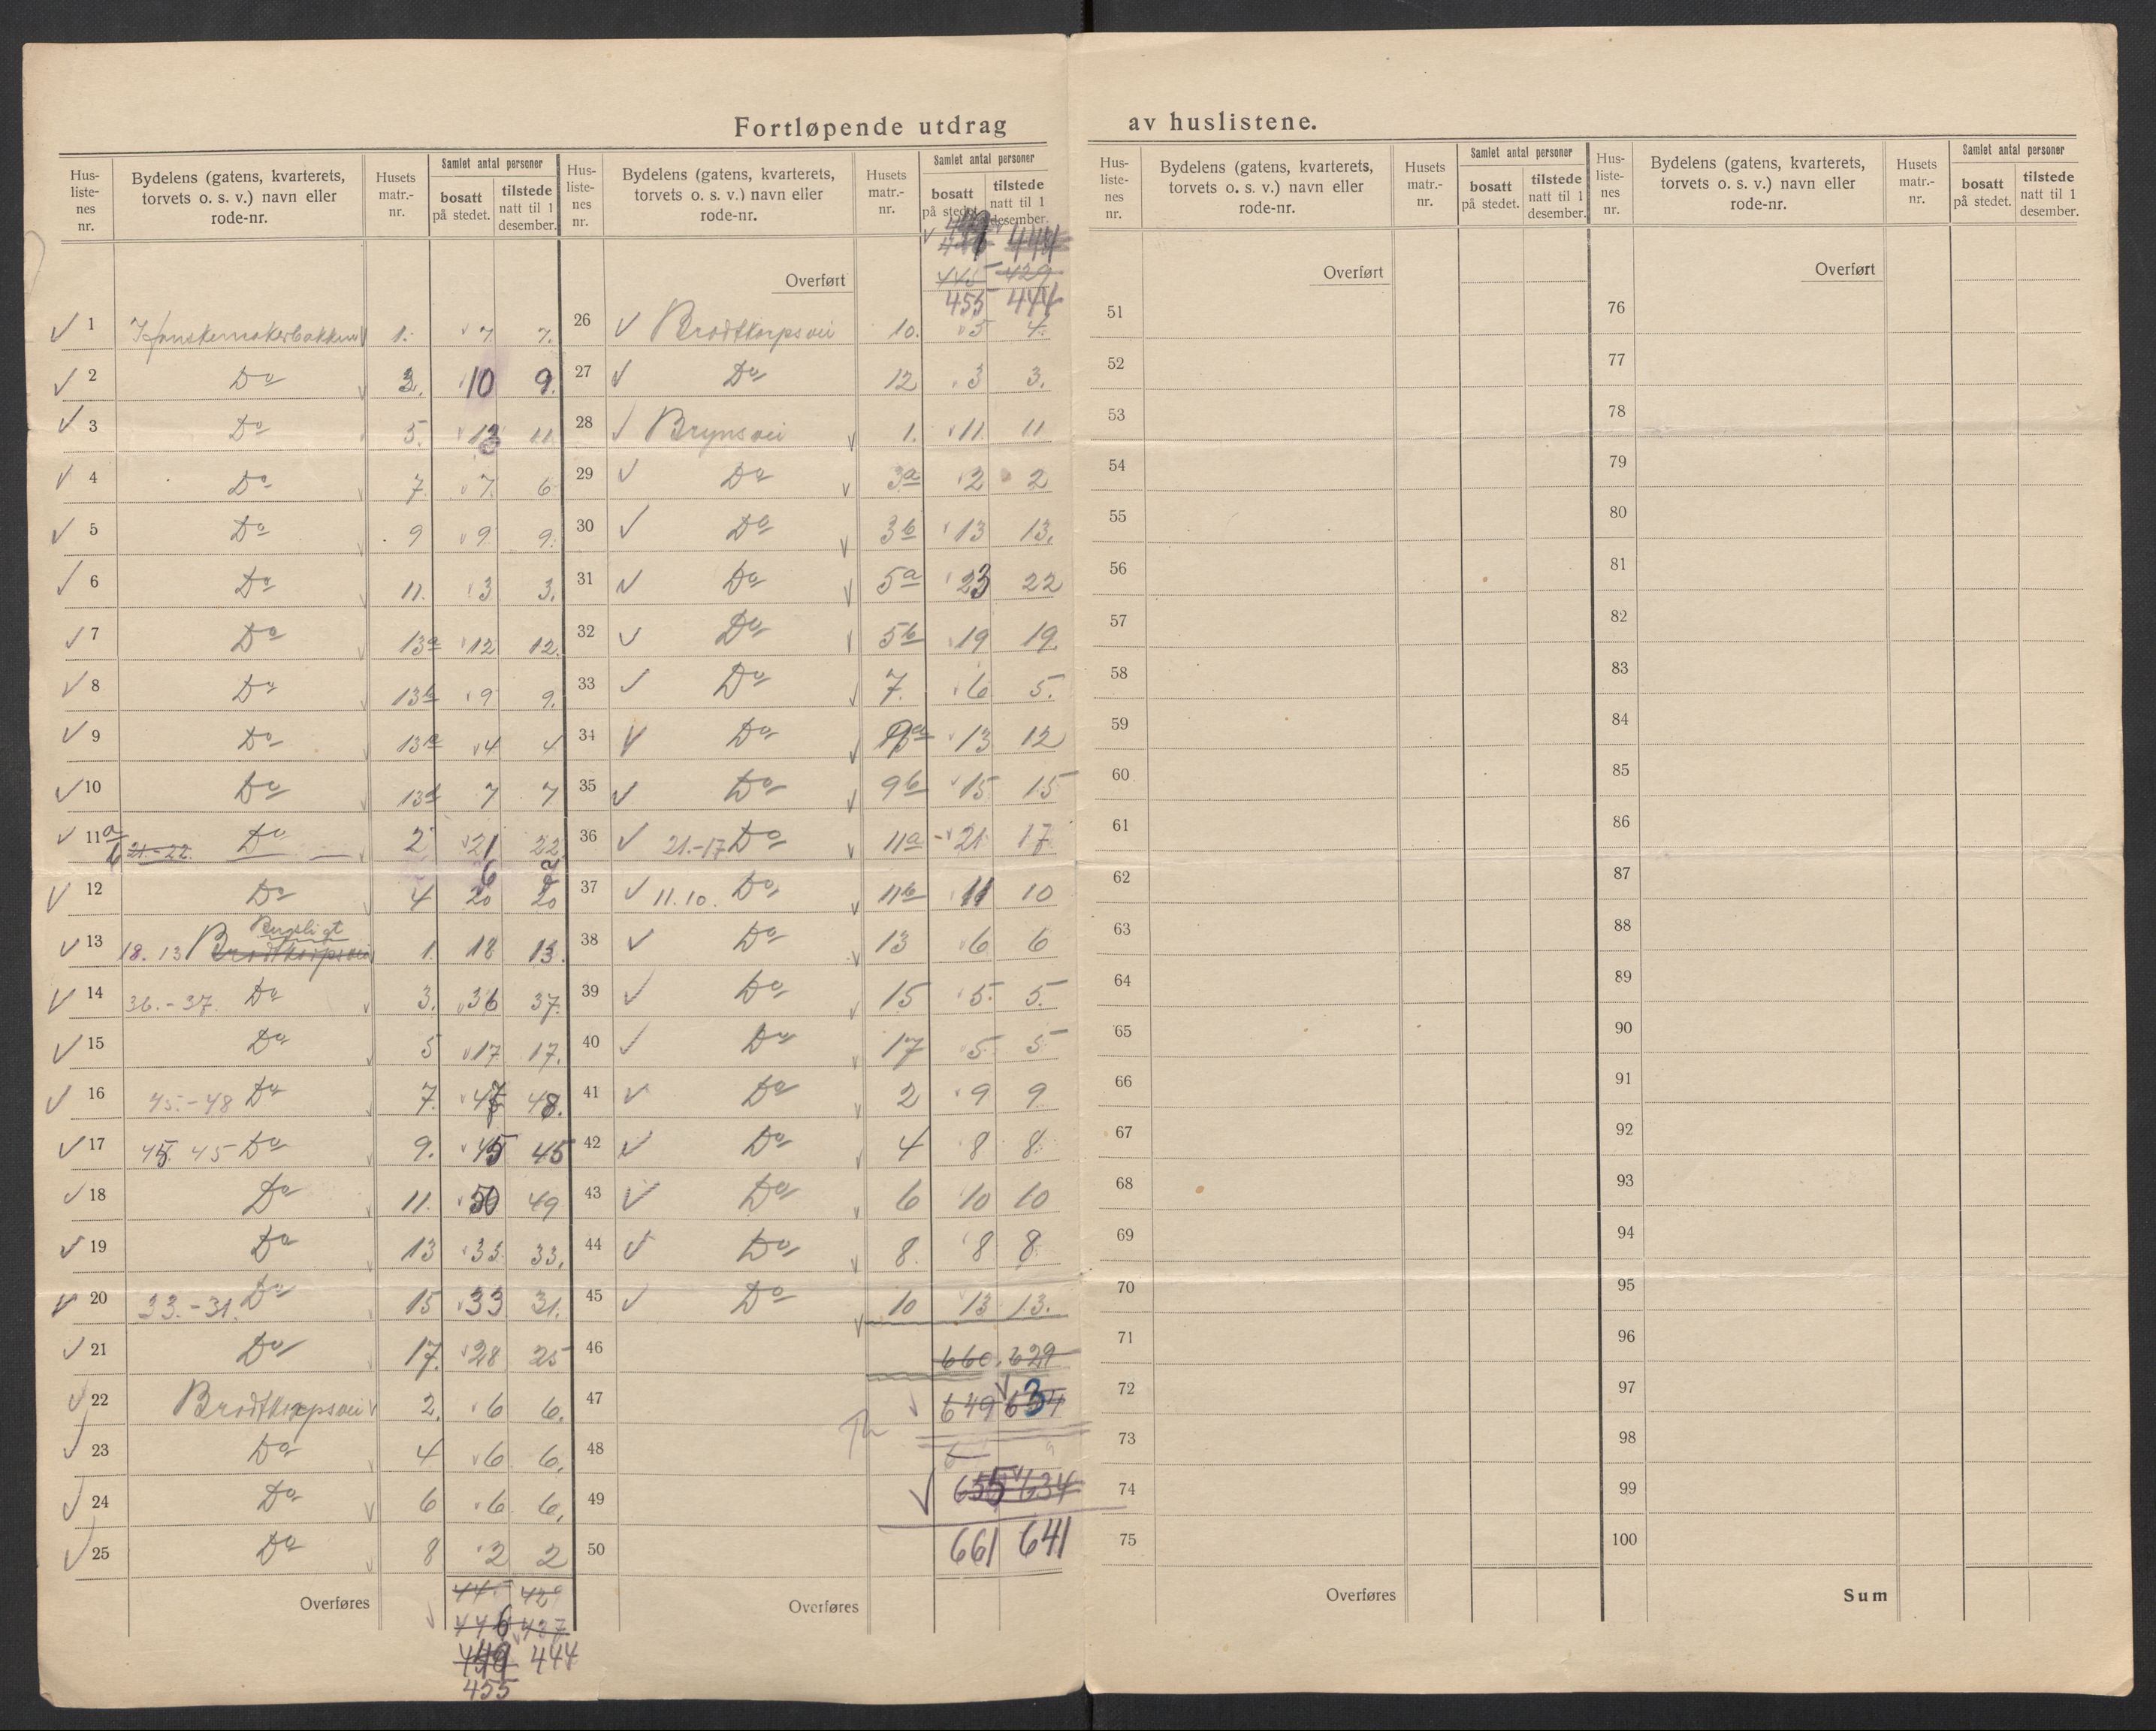 Fortløpende utdrag av huslistene.
Hus-listenes nr. | Bydelens (gatens, kvarterets, torvets o. s. v.) navn eller rode-nr. | Husets matr.-nr. | Samlet antal personer bosatt på stedet. | tilstede natt til 1 desember.
1 Hanskemakerbakken 1. 7. 7.
2 Do 3. 10 9.
3 Do 5. 13 11
4 Do 7. 7. 6
5 Do 9 9 9.
6 Do 11. 3 3.
7 Do 13a 12 12.
8 Do 13b 9 9.
9 Do 4 4
10 Do 7 7
11 a b 21.-22. Do 2 21 22
6
12 Do 4 20 20
13 18. 13 Brodtkorpsvei 1. 18 13.
14 36.-37. Do 3. 36 37.
15 Do 5 17. 17.
16 45.-48 Do 7. 47 48.
17 45. 45 Do 9. 45 45
18 Do 11. 50 49
19 Do 13 33. 33.
20 33.-31. Do 15 33 31.
21 Do 17. 28 25
22 Brodtkorpsvei 2. 6 6.
23 Do 4 6 6.
24 Do 6 6 6.
25 Do 8 2 2
Overføres 445 429
446 437
449 444
455
Hus-listenes nr. | Bydelens (gatens, kvarterets, torvets o. s. v.) navn eller rode-nr. | Husets matr.-nr. | Samlet antal personer bosatt på stedet. | tilstede natt til 1 desember.
444
Overført 445 429
455 444
26 Brodtkorpsvei 10. 5 4.
27 Do 12 3 3.
28 Brynsvei 1. 11. 11
29 Do 3a 2 2
30 Do 3b 13 13.
31 Do 5a 23 22
32 Do 5b 19 19.
33 Do 7. 6 5.
34 Do 9a 13 12
35 Do 9b 15 15
36 21.-17 Do 11a 21. 17
37 11. 10. Do 11b 11 10
38 Do 13 6 6
39 Do 15 5. 5.
40 Do 17 5. 5
41 Do 2 9 9
42 Do 4 8 8.
43 Do 6 10 10
44 Do 8. 8 8.
45 Do 10 13 13.
46 660. 629
47 649 634
48 6
49 655 634
50 661 641
Overføres
Hus-listenes nr. | Bydelens (gatens, kvarterets, torvets o. s. v.) navn eller rode-nr. | Husets matr.-nr. | Samlet antal personer bosatt på stedet. | tilstede natt til 1 desember.
Overført
51
52
53
54
55
56
57
58
59
60
61
62
63
64
65
66
67
68
69
70
71
72
73
74
75
Overføres
Hus-listenes nr. | Bydelens (gatens, kvarterets, torvets o. s. v.) navn eller rode-nr. | Husets matr.-nr. | Samlet antal personer bosatt på stedet. | tilstede natt til 1 desember.
Overført
76
77
78
79
80
81
82
83
84
85
86
87
88
89
90
91
92
93
94
95
96
97
98
99
100
Sum